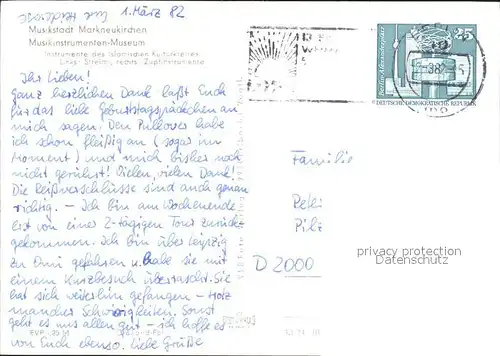 1. März 82
Musikstadt Markneukirchen
Musikinstrumenten-Museum
Instrumente des islamischen Kulturkreises
Links: Streich-, rechts: Zupfinstrumente
Ihr Lieben!
Ganz herzlichen Dank laßt Euch
für das liebe Geburtstagspäckchen an
mich sagen. Den Pullover habe
ich schon fleißig an (sogar im
Moment) und mich bisher noch
nicht gerührt! Vielen, vielen Dank!
Die Reißverschlüsse sind auch genau
richtig. – Ich bin am Wochenende
erst von einer 2-tägigen Tour zurück-
gekommen. Ich bin über Leipzig
zu Omi gefahren u. habe sie mit
einem Kurzbesuch überrascht. Sie
hat sich weiterhin gefangen – trotz
mancher Schwierigkeiten. Sonst
geht es uns allen gut – ich hoffe es
von Euch ebenso. Liebe Grüße
Berlin, Alexanderplatz
25
DEUTSCHE DEMOKRATISCHE REPUBLIK
Familie
Peter
Pilz
D 2000
privacy protection
Datenschutz